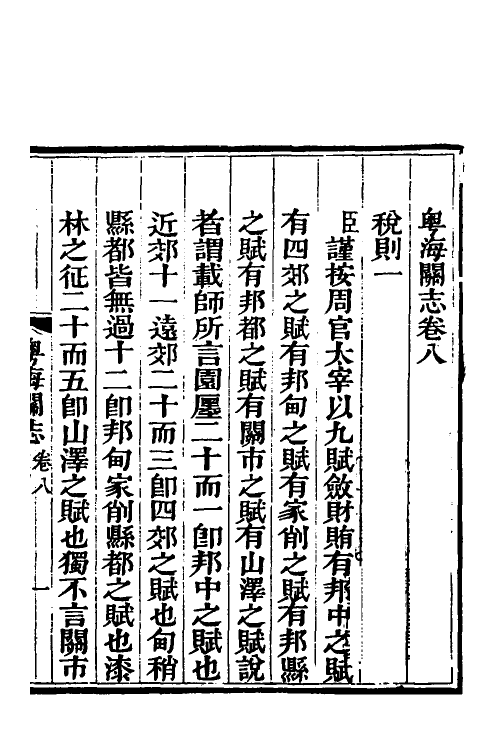 粤海關志卷八
稅則一
臣謹按周官太宰以九賦斂財賄有邦中之賦
有四郊之賦有邦甸之賦有家削之賦有邦縣
之賦有邦都之賦有關市之賦有山澤之賦說
者謂載師所言園廛二十而一卽邦中之賦也
近郊十一遠郊二十而三卽四郊之賦也甸稍
縣都皆無過十二卽邦甸家削縣都之賦也漆
林之征二十而五卽山澤之賦也獨不言關市
粤海關志 卷八 一